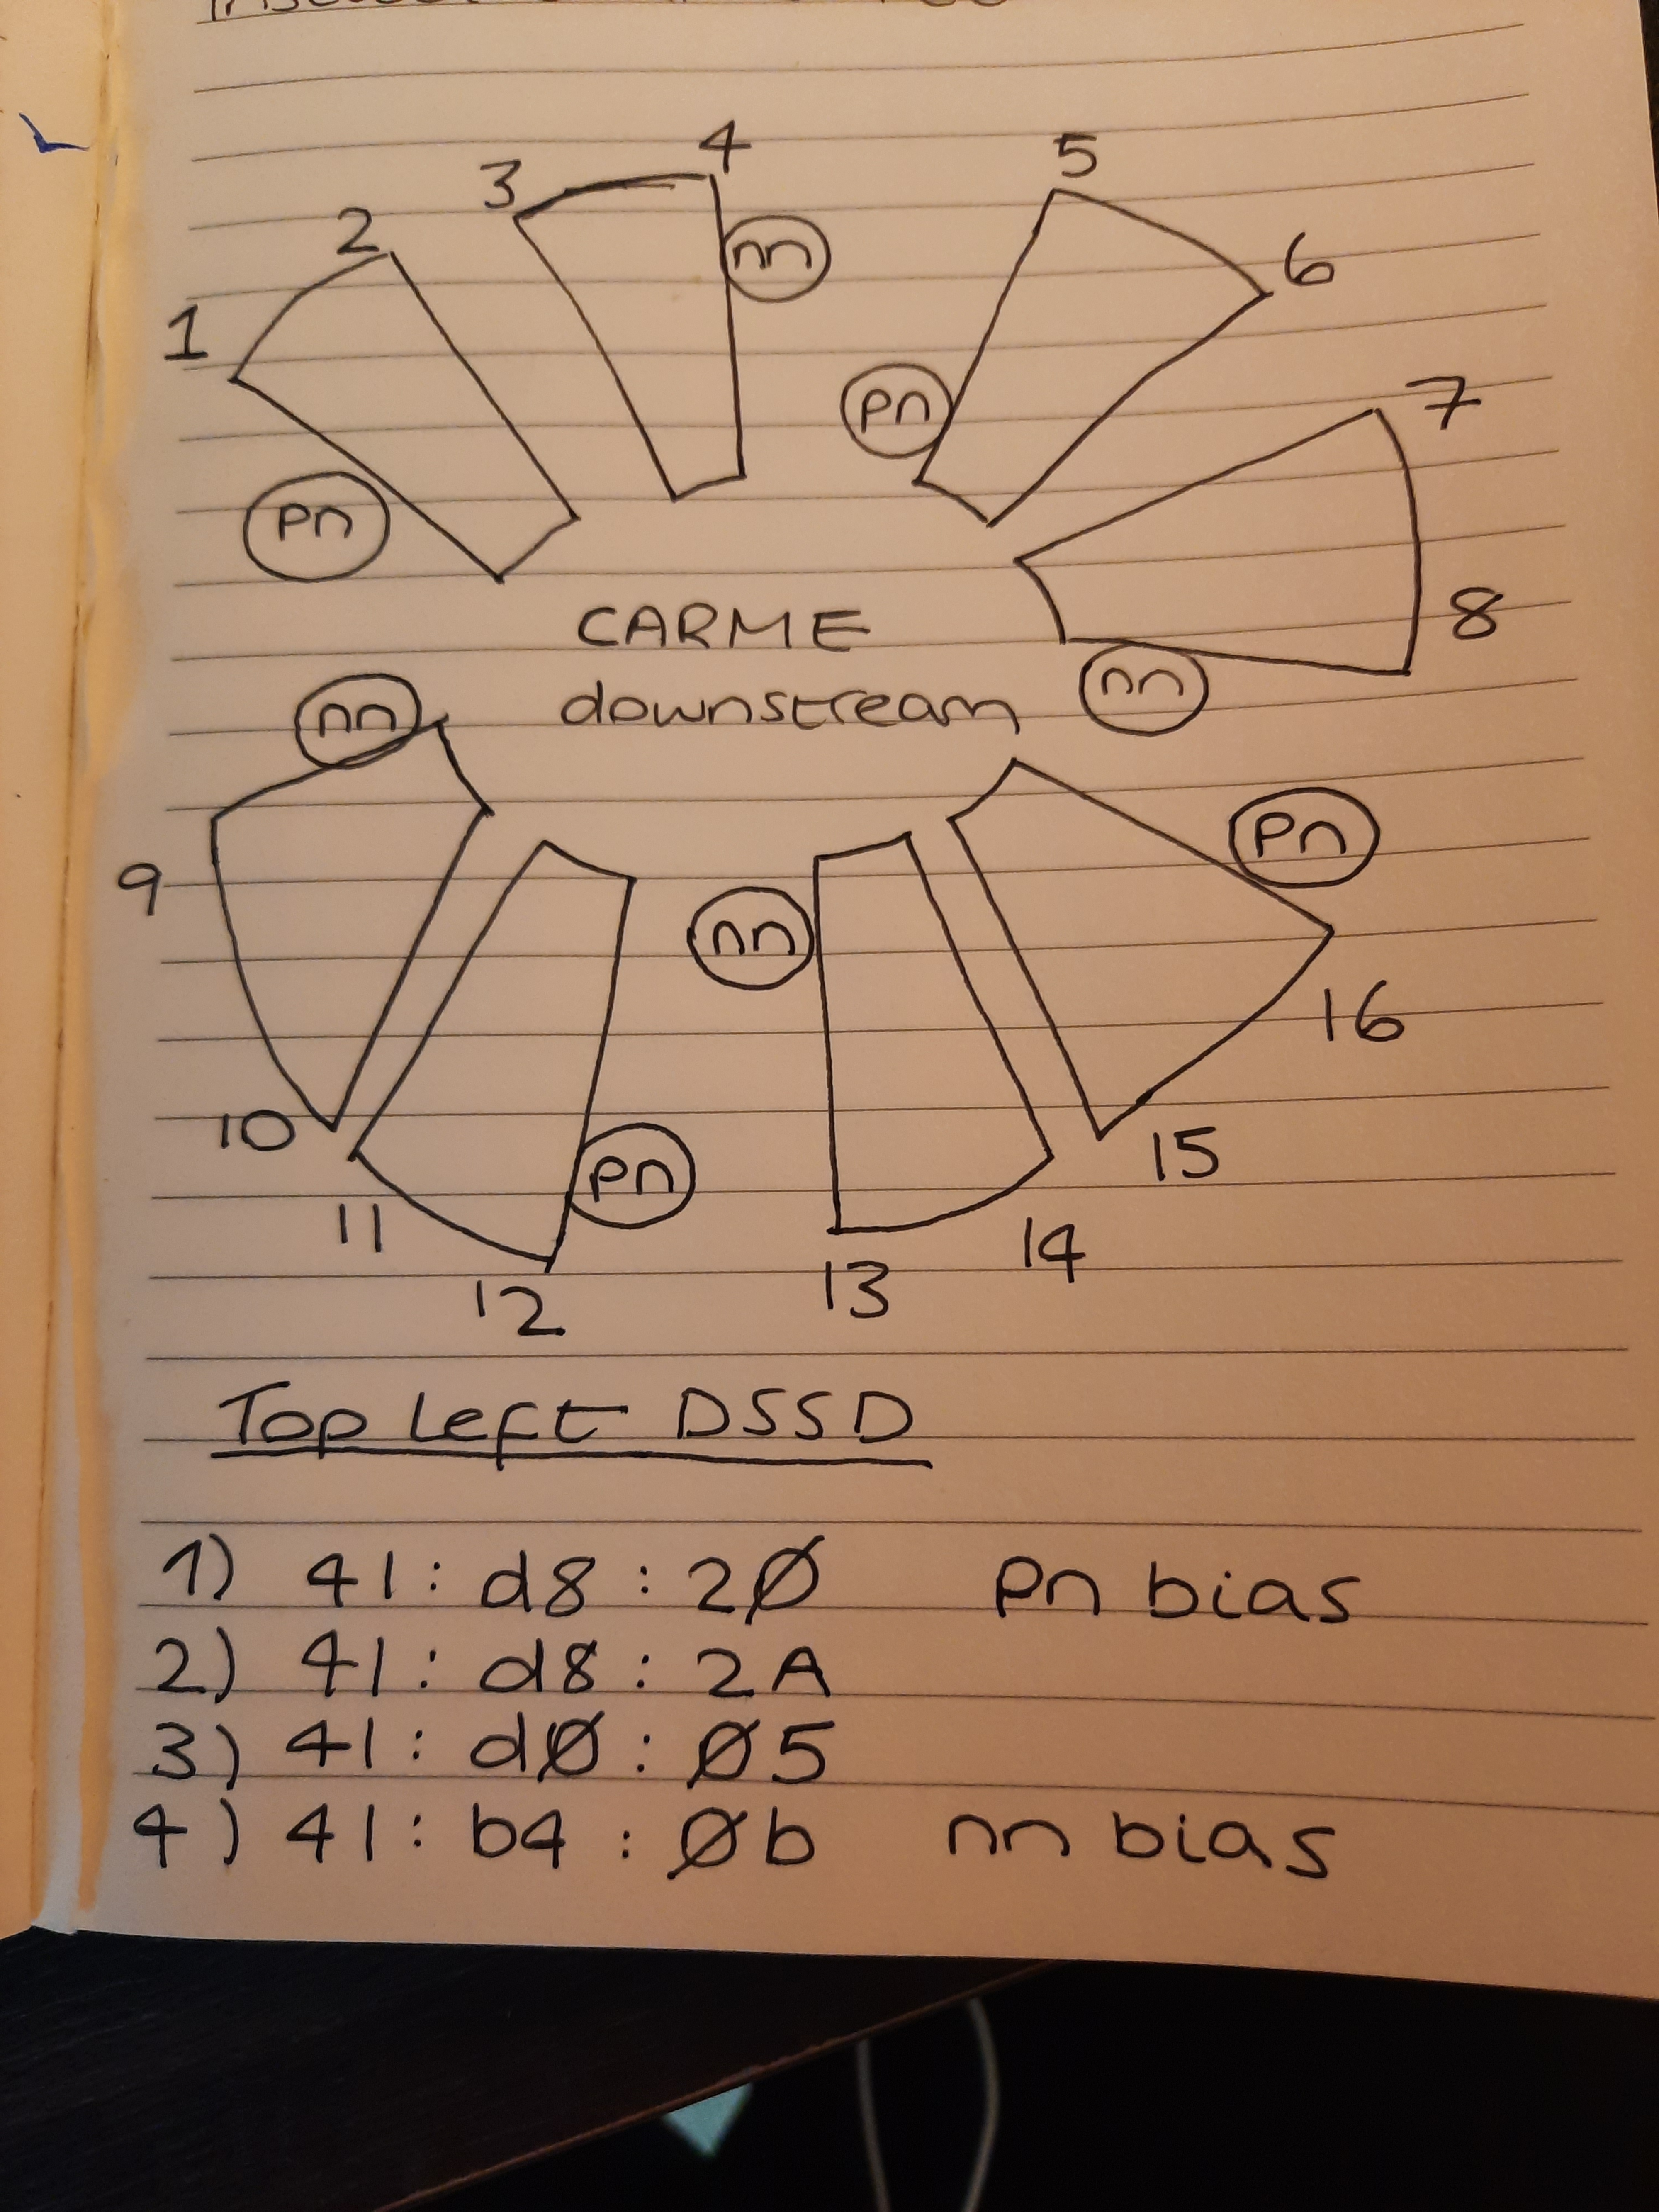 4
3
5
2
nn
6
1
pn
7
pn
CARME
8
nn
nn
downstream
pn
9
nn
16
10
pn
15
11
14
12
13
Top Left DSSD
1) 41 : d8 : 2Ø pn bias
2) 41 : d8 : 2A
3) 41 : dØ : Ø5
4) 41 : b4 : Øb nn bias